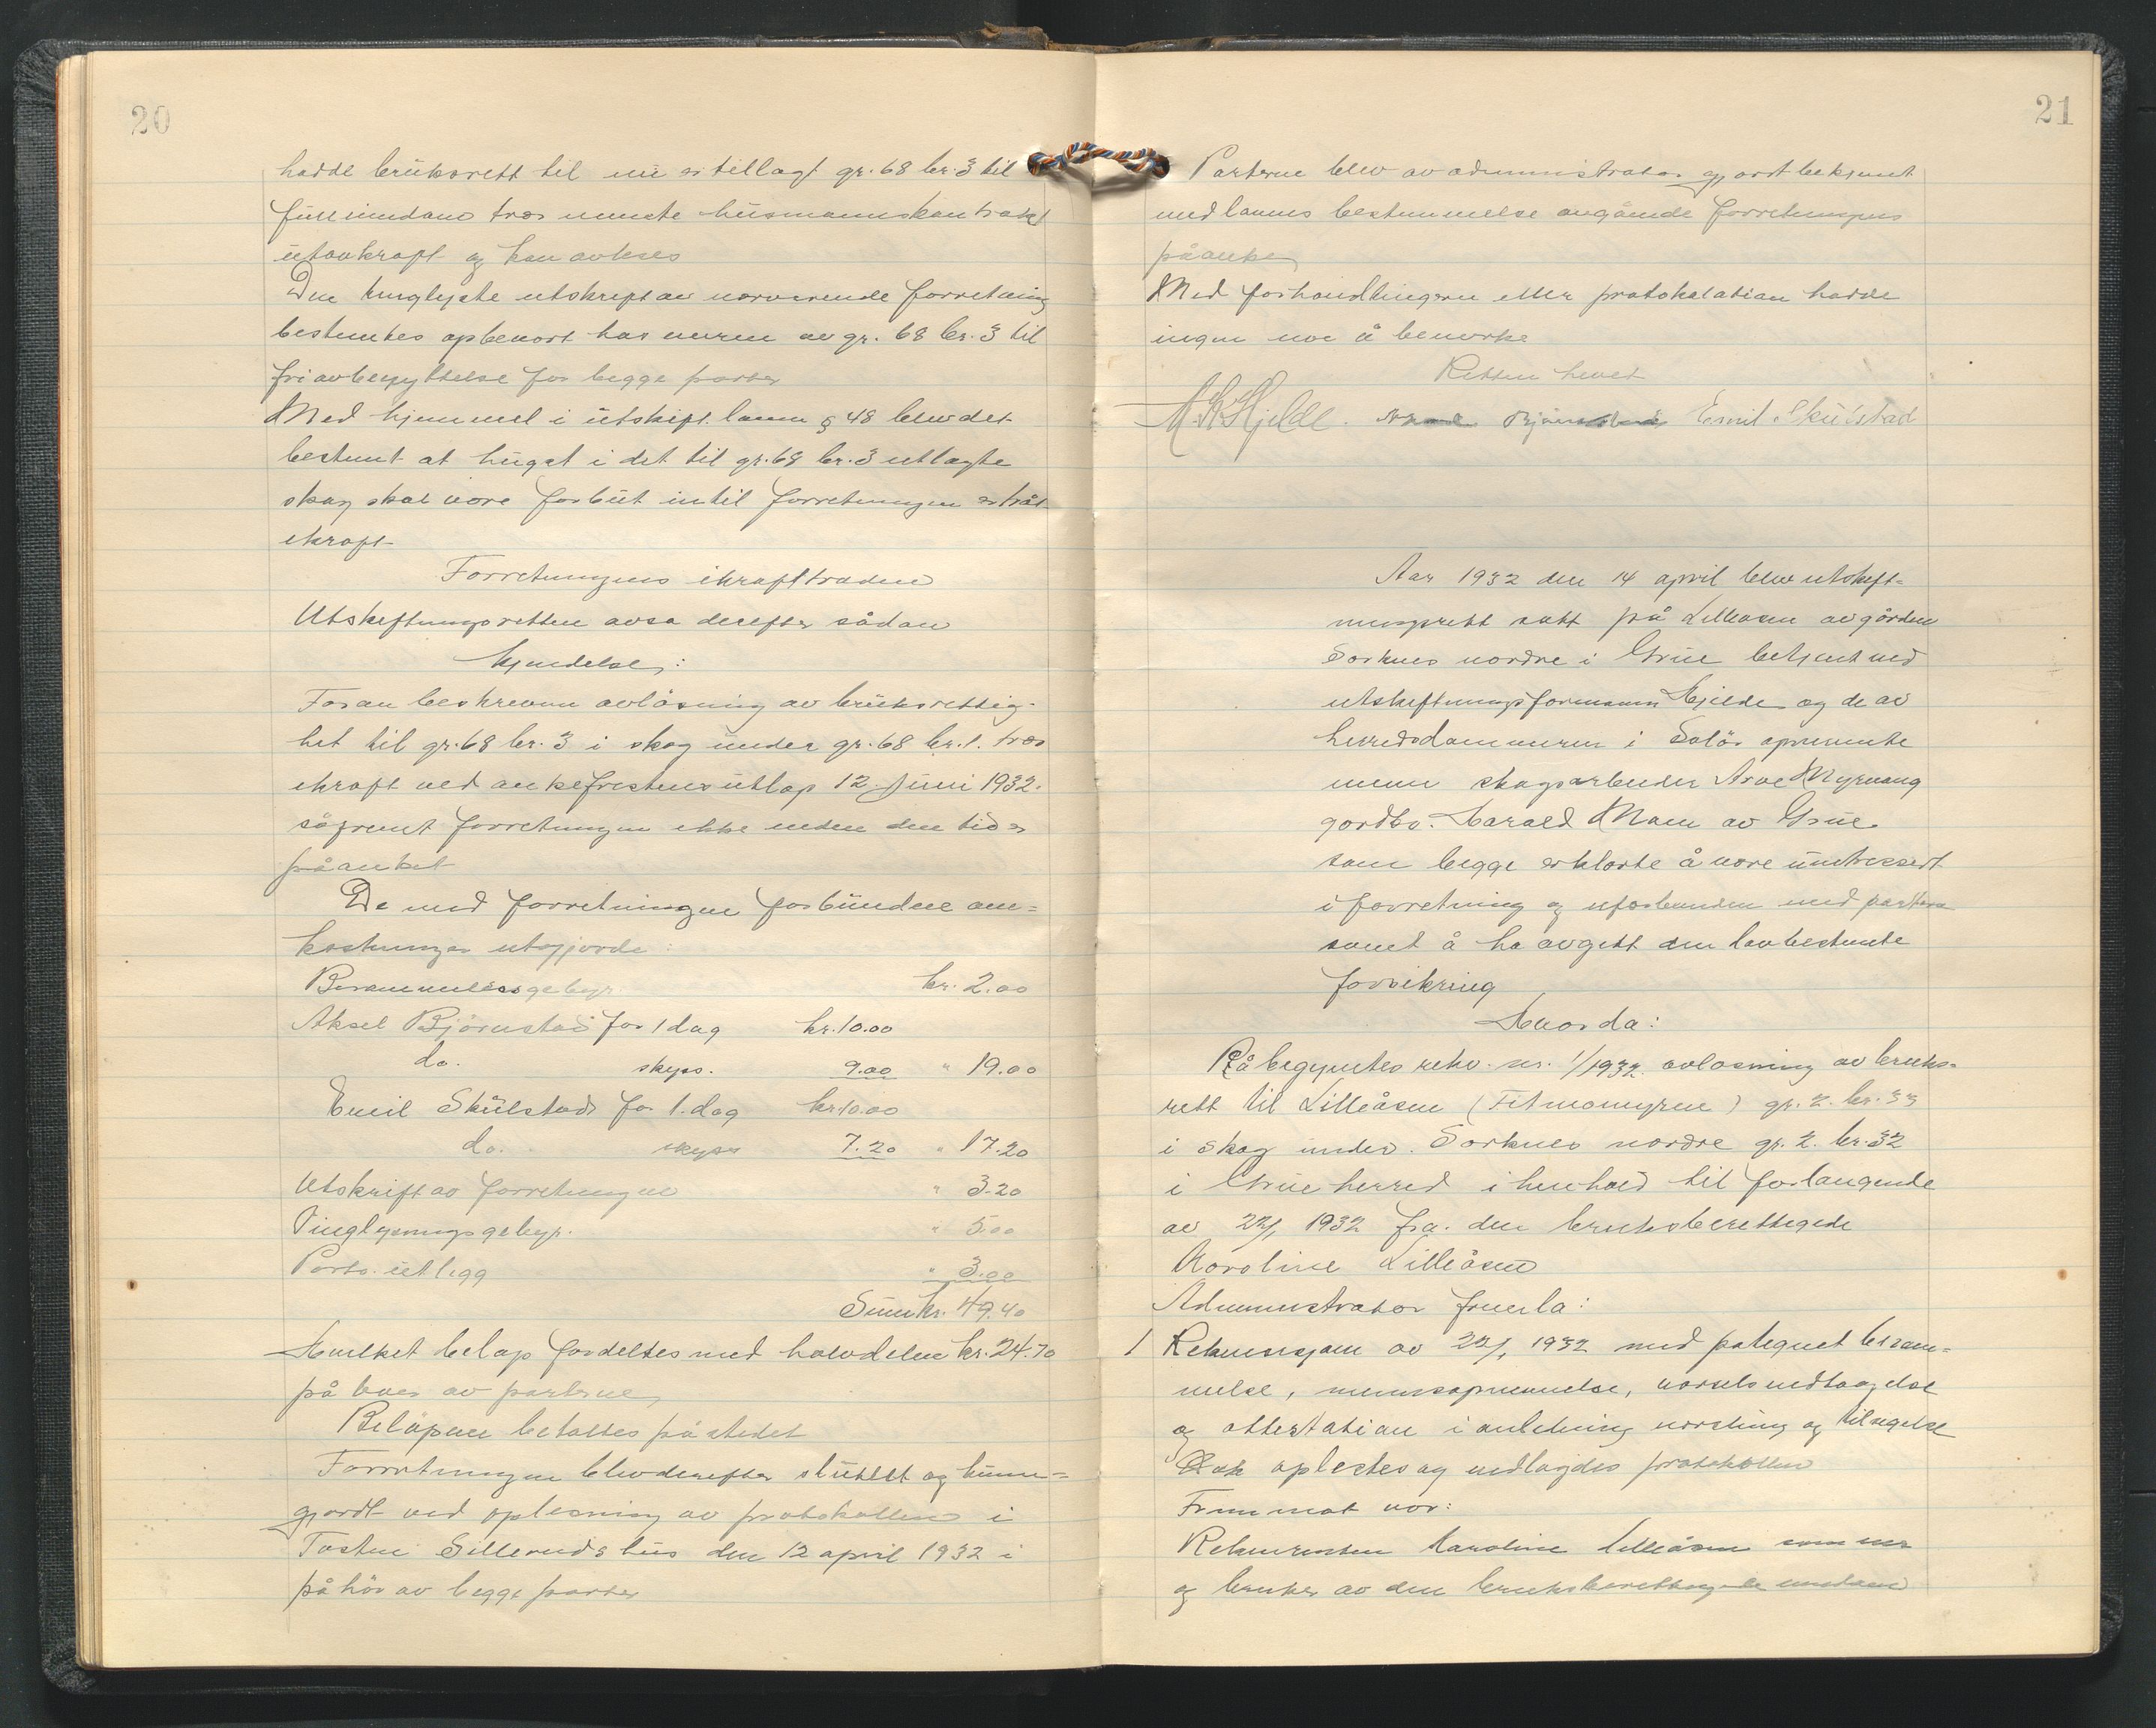 20
hadde bruksrett til nu er tillagt gr. 68 br. 3 til
full eiendom tres nevnte husmannskontrakt
utavkraft og kan avleses
Den tinglyste utskrift av nærværende forretning
bestemtes opbevart hos eieren av gr. 68 br. 3 til
fri avbenyttelse for begge parter
Med hjemmel i utskift. loven § 48 blev det
bestemt at hugst i det til gr. 68 br. 3 utlagte
skog skal være forbut intil forretningen er tråt
ikraft
Forretningens ikrafttræden
Utskiftningsretten avsa derefter sådan
kjendelse:
Foran beskrevne avløsning av bruksrettig-
het til gr. 68 br. 3 i skog under gr. 68 br. 1. træs
ikraft ved ankefristens utløp 12 juni 1932.
såfremt forretningen ikke inden den tid er
påanket
De med forretningen forbundne om=
kostninger utgjorde:
Berammelsesgebyr kr. 2.00
Aksel Bjørnstad for 1 dag kr. 10.00
do. skyss. 9.00 " 19.00
Emil Skulstad for 1. dag kr. 10.00
do. skyss 7.20 " 17.20
Utskrift av forretningen " 3.20
Tinglysningsgebyr. " 5.00
Porto utlegg " 3.00
Sum kr. 49.40
Hvilket beløp fordeltes med halvdelen kr. 24.70
på hver av parterne
Beløpene betaltes på stedet
Forretningen blev derefter sluttet og kunn=
gjordt ved oplesning av protokollen i
Tosten Silleruds hus den 12 april 1932 i
påhør av begge parter
21
Parterne blev av administrator gjordt bekjent
med lovens bestemmelse angående forretningens
påanke
Med forhandlingerne eller protokolation hadde
ingen noe å bemerke
Retten hevet
M. K. Hjelde. Aksel Bjørnstad Emil Skulstad
Aar 1932 den 14 april blev utskift=
ningsrett satt på Lilleåsen av gården
Sorknes nordre i Grue betjent ved
utskiftningsformann Hjelde og de av
herredsdommeren i Solør opnevnte
menn skogsarbeider Arve Myrvang
gårdbr. Harald Moen av Grue
som begge erklærte å være uintressert
i forretning og uforbunden med parterne
samt å ha avgitt den lovbestemte
forsikring
Hvorda:
Påbegyntes rekv. nr. 1/1932 avløsning av bruks-
rett til Lilleåsen (Fitmomyren) gr. 2. br. 33
i skog under. Sorknes nordre gr. 2. br. 32
i Grue herred i henhold til forlangende
av 22/1 1932 fra. den bruksberettigede
Karoline Lilleåsen
Administrator fremla:
1 Rekvisisjon av 22/1 1932 med påtegnet beram=
melse, mennsopnevnelse, varselsvedtagelse
og attestation i anledning varsling og tilsigelse
Dok oplestes og vedlagdes protokollen
Fremmøt var:
Rekvirenten Karoline Lilleåsen som eier
og bruker av den bruksberettigede eiendom